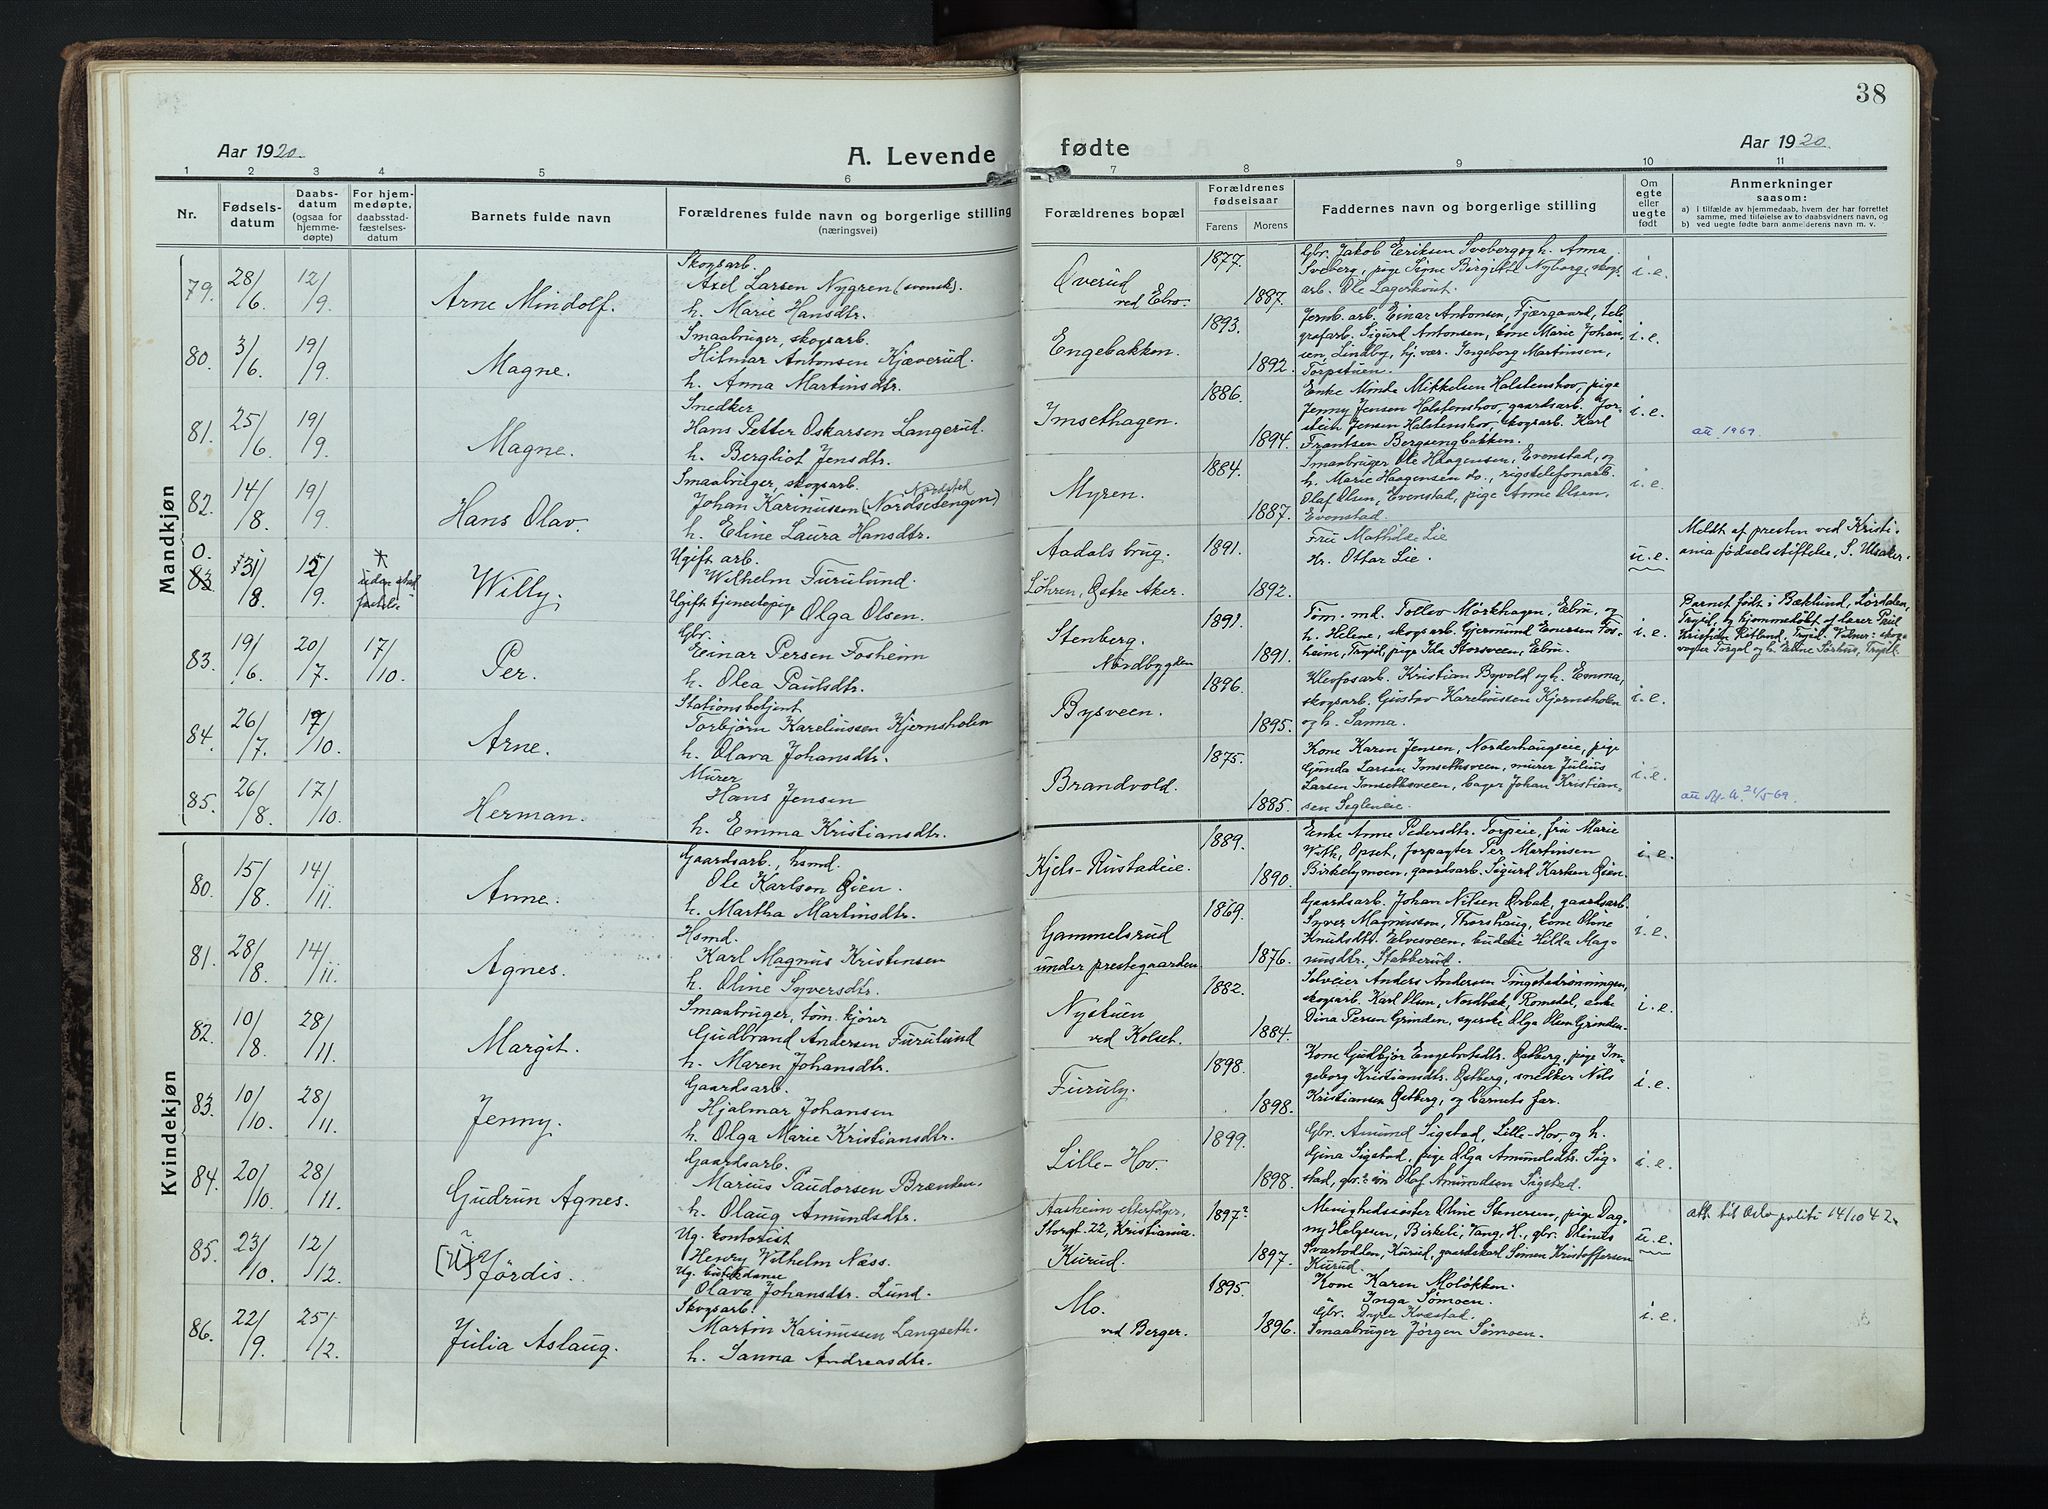 38
Aar 1920.
A. Levende
fødte
Aar 1920.
1 2 3 4 5 6 7 8 9 10 11
Nr.
Fødselsdatum
Daabsdatum (ogsaa for hjemmedøpte)
For hjemmedøpte, daabsstadfæstelsesdatum
Barnets fulde navn
Forældrenes fulde navn og borgerlige stilling (næringsvei)
Forældrenes bopæl
Forældrenes fødselsaar
Farens Morens
Faddernes navn og borgerlige stilling
Om egte eller uegte født
Anmerkninger saasom:
a) i tilfælde av hjemmedaab, hvem der har forrettet samme, med tilføielse av to daabsvidners navn, og
b) ved uegte fødte barn anmelderens navn m. v.
Mandkjøn
79. 28/6. 12/9. Arne Mindolf.
Skogsarb.
Axel Larsen Nygren (svensk).
h. Marie Hansdtr.
Øverud
ved Ebro.
1877. 1887.
Gbr. Jakob Eriksen Sveberg og h. Anna
Sveberg, pige Signe Birgitte Nyborg, skogs
arb. Ole Lagerkvist.
i. e.
80. 3/6. 19/9. Magne.
Smaabruger, skogsarb.
Hilmar Antonsen Kjæverud
h. Anna Martinsdtr.
Engebakken.
1893. 1892.
Jernb. arb. Einar Antonsen, Fjærgaard, tele
grafarb. Sigurd Antonsen, kone Marie Johan
sen, Lindby, hj. vær. Ingeborg Martinsen,
Torpstuen.
i. e.
81. 25/6. 19/9. Magne.
Snedker
Hans Petter Oskarsen Langerud.
h. Bergliot Jensdtr.
Imsethagen.
1886. 1894.
Enke Minda Mikkelsen Halstenshov, pige
Jenny Jensen Halstenshov, gaardsarb. Tor-
stein Jensen Halstenshov, skogsarb. Karl
Frantsen Bergsengbakken.
i. e.
att. 1969.
82. 14/8. 19/9. Hans Olav.
Smaabruger, skogsarb.
Johan Karinussen (Nordseengen)
h. Eline Laura Hansdtr.
Myren.
1884. 1887.
Smaabruger Ole Haagensen, Evenstad, og
h. Marie Haagensen do., rigstelefonarb.
Olaf Olsen, Evenstad, pige Anne Olsen,
Evenstad.
i. e.
0. 83 31/8. 15/9. Willy.
Ugift arb.
Wilhelm Furulund.
Ugift tjenestepige Olga Olsen.
Aadals brug.
Løhren, Østre Aker.
1891. 1892.
Fru Mathilde Lie
Hr. Ottar Lie.
u. e.
Meldt af presten ved Kristi-
ania fødselsstiftelse, S. Utsaker.
83. 19/6. 20/7. 17/10. Per.
Gbr.
Einar Persen Fosheim
h. Olea Paulsdtr.
Stenberg.
Nordbygden
1891. 1891.
Tøm. md. Tollev Mørkhagen, Ebru, og
h. Helene, skogsarb. Gjermund Enersen Fos-
heim, Trysil, pige Ida Storsveen, Ebru.
i. e.
Barnet født i Bæklund, Sørdalen,
Trysil, og hjemmedøbt af lærer Paul
Kristian Ritland, Trysil. Vidner: skog
vogter Torgal og h. Eline Sørhus, Trysil.
84. 26/7. 17/10. Arne.
Stationsbetjent
Torbjørn Kareliussen Kjernsholen
h. Olava Johansdtr.
Bysveen.
1896. 1895.
Klevfosarb. Kristian Byvold og h. Emma,
skogsarb. Gustav Kareliussen Kjernsholen
og h. Sanna.
i. e.
85. 26/8. 17/10. Herman.
Murer
Hans Jensen
h. Emma Kristiansdtr.
Brandvold.
1875. 1885.
Kone Karen Jensen, Norderhaugseie, pige
Gunda Larsen Imsethsveen, murer Julius
Larsen Imsethsveen, bager Johan Kristian-
sen Segleneie.
i. e.
Kvindekjøn
80. 15/8. 14/11. Anne.
Gaardsarb., hsmd.
Ole Karlson Øien.
h. Martha Martinsdtr.
Kjels-Rustadeie.
1889. 1890.
Enke Anne Pedersdtr. Torpeie, fru Marie
With, Opset, forpagter Per Martinsen
Birkelymoen, gaardsarb. Sigurd Karlsen Øien.
i. e.
81. 28/8. 14/11. Agnes.
Hsmd.
Karl Magnus Kristensen
h. Oline Syversdtr.
Gammelsrud
under prestegaarden
1869. 1876.
Gaardsarb. Johan Nilsen Orbak, gaardsarb.
Syver Magnussen, Thorshaug, kone Oline
Knudsdtr. Elvesveen, budeie Hilda Mag-
nusdtr., Stabberud.
i. e.
82. 10/8. 28/11. Margit.
Smaabruger, tøm. kjører
Gudbrand Andersen Furulund
h. Maren Johansdtr.
Nystuen
ved Kolset.
1882. 1884.
Selveier Anders Andersen Tingstadrønningen,
skogsarb. Karl Olsen, Nordbæk, Romedal, enke
Dina Persen Grinden, syerske Olga Olsen Grinden.
i. e.
83. 10/10. 28/11. Jenny.
Gaardsarb.
Hjalmar Johansen
h. Olga Marie Kristiansdtr.
Furuly.
1898. 1898.
Kone Gudbjør Engebretsdtr. Østberg, pige In-
geborg Kristiansdtr. Østberg, snedker Nils
Kristiansen Østberg, og barnets far.
i. e.
84. 20/10. 28/11. Gudrun Agnes.
Gaardsarb.
Marius Paudorsen Brænden.
h. Olaug Amundsdtr.
Lille-Hov.
1899. 1898.
Gbr. Amund Sigstad, Lille-Hov, og h.
Gina Sigstad, pige Olga Amundsdtr. Sig-
stad, gbr. søn Olaf Amundsen Sigstad.
i. e.
85. 23/10. 12/12. Hjördis.
Ug. kontorist
Henry Wilhelm Næss.
Ug. butikdame
Olava Johansdtr. Lund.
Aasheim efterfølger,
Storgt. 22, Kristiania.
Kurud.
1897? 1897.
Menighedssøster Oline Stenersen, pige Dag-
ny Holgsen, Birkeli, Vang, H., gbr. Olinus
Svartodden, Kurud, gaardskarl Simen Kristoffersen
Kurud.
u. e.
att. til Oslo politi 14/10 42.
86. 22/9. 25/12. Julia Aslaug.
Skogsarb.
Martin Karinussen Langseth.
h. Sanna Andreasdtr.
Mo.
ved Berger.
1895. 1896.
Kone Karen Moløkken.
" Inga Sømoen.
Gbr. Dyre Kvæstad.
Smaabruger Jørgen Sømoen.
i. e.